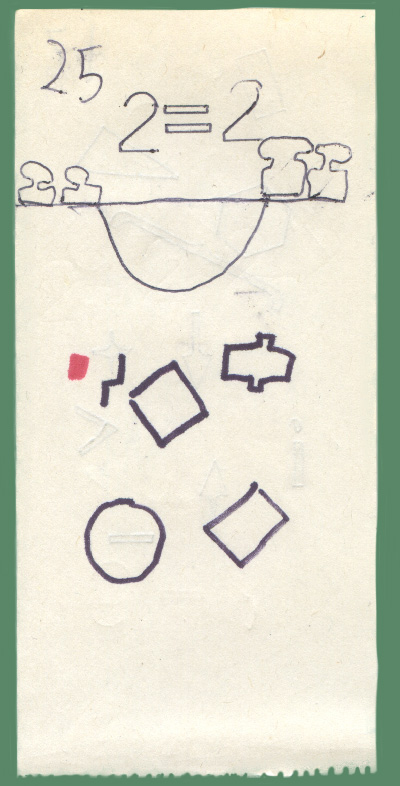 25
2=2